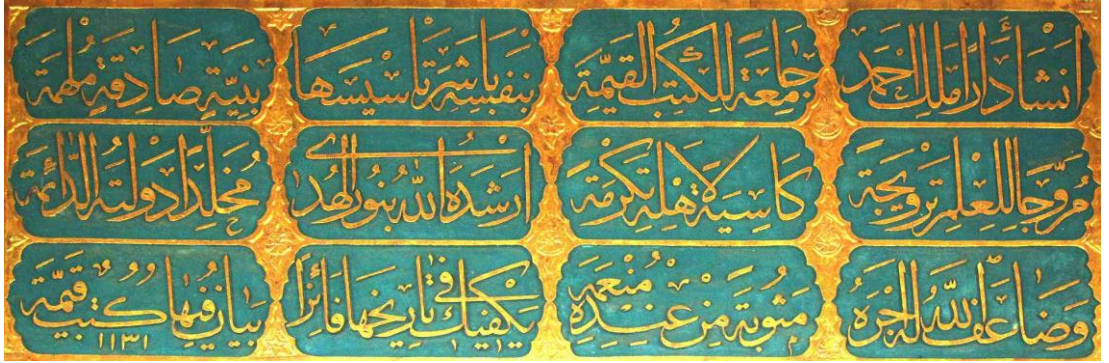 انشأ دارا ملك احمد جامعة للكتب القيمة بنفسه باشر تأسيسها بنية صادقة ملهمة
مروجا للعلم ترويجه كاسية لاهله تكرمة ارشده الله بنور الهدى مخلدا دولته الدائمة
وضاعف الله له اجره مثوبة من عنده منعمة يكفيك في تاريخها فائزا بيان فيها كتب قيمة
١١٣١